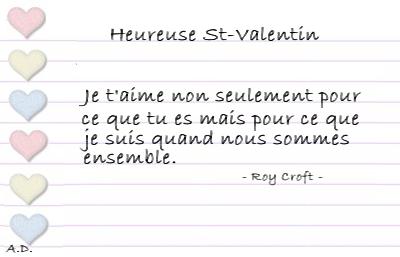 Heureuse St-Valentin
Je t'aime non seulement pour
ce que tu es mais pour ce que
je suis quand nous sommes
ensemble.
- Roy Croft -
A.D.